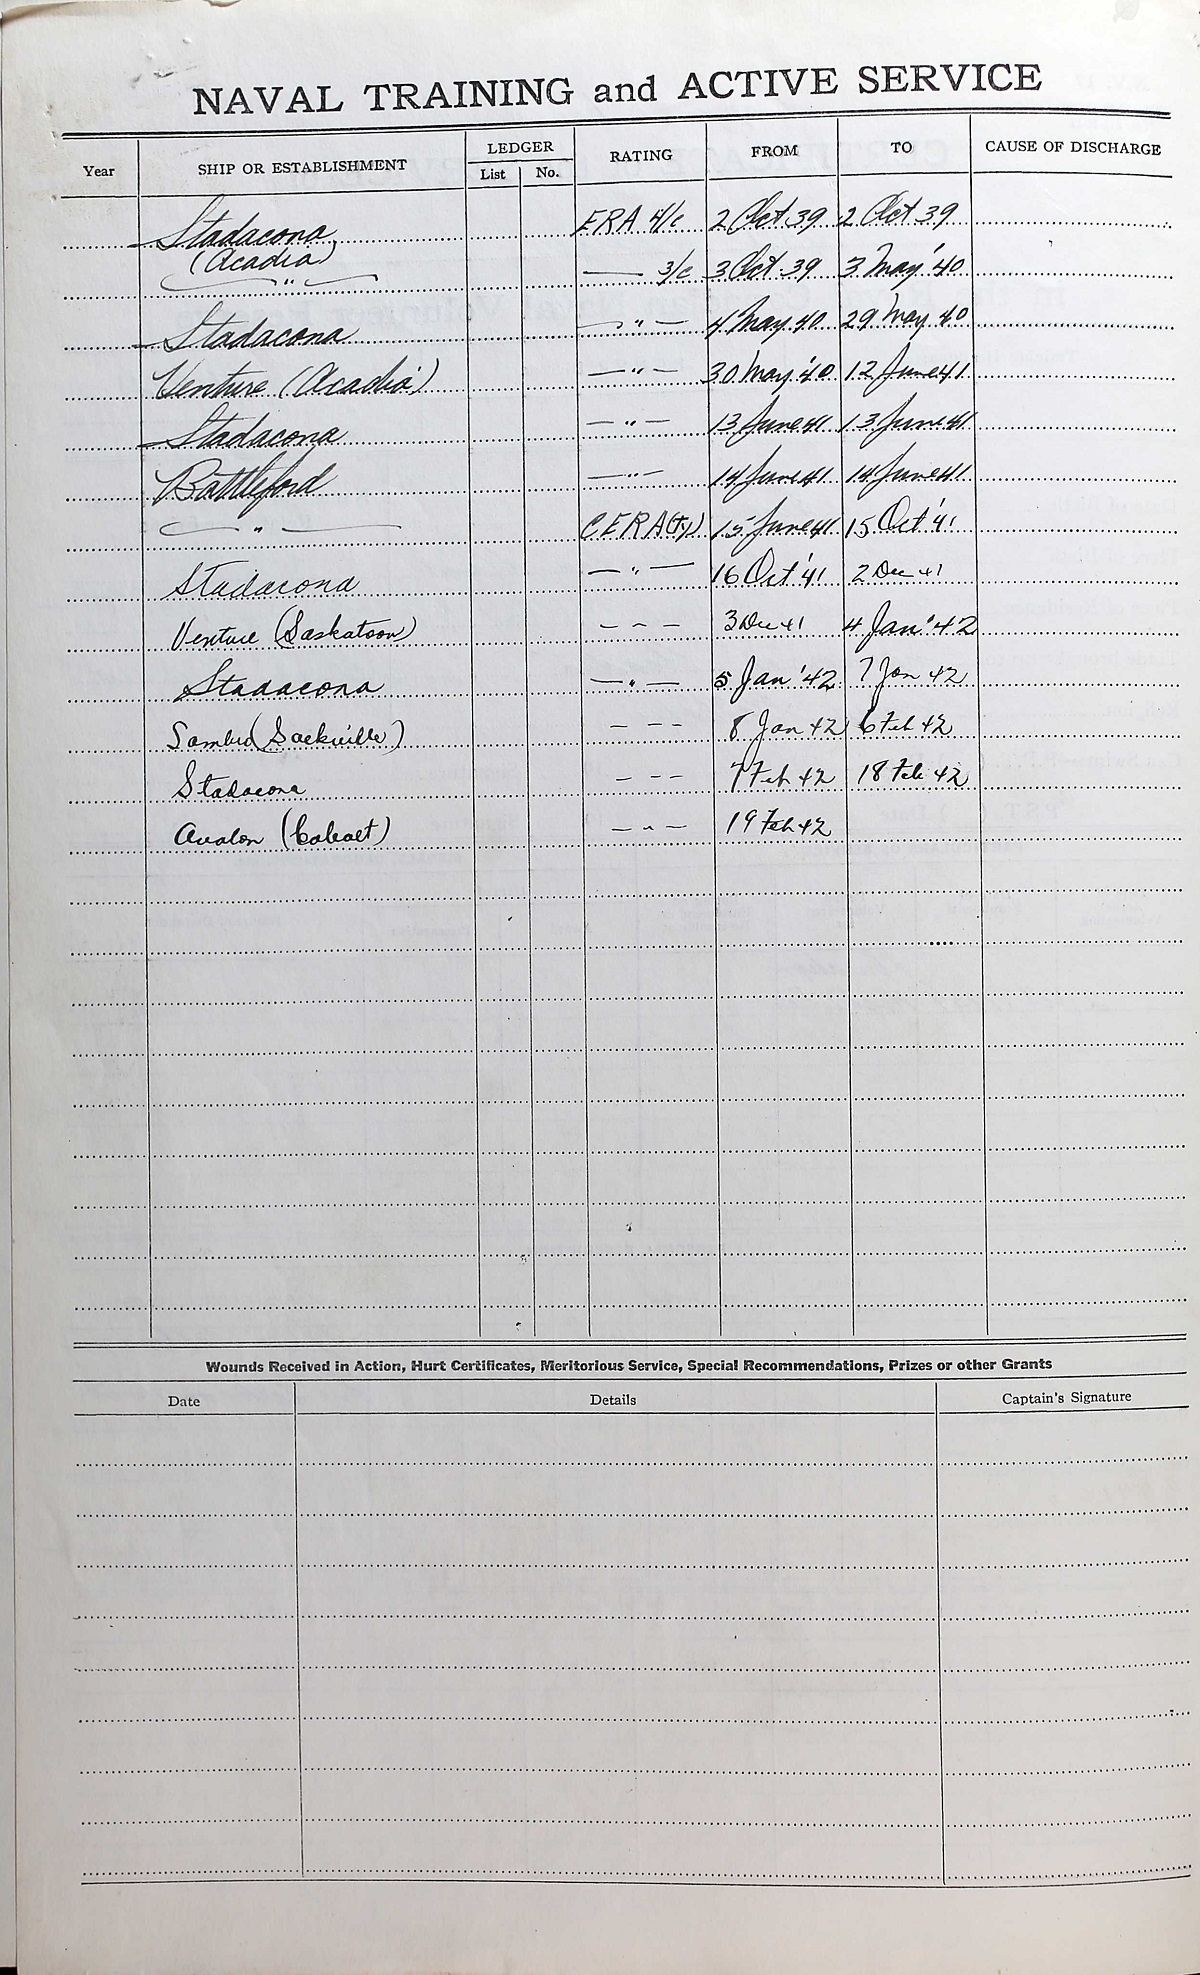 NAVAL TRAINING and ACTIVE SERVICE
Year SHIP OR ESTABLISHMENT LEDGER List No. RATING FROM TO CAUSE OF DISCHARGE
Stadacona ERA 4/c 2 Oct 39 2 Oct 39
(Acadia)
" — 3/c 3 Oct 39 3 May '40
Stadacona — " — 4 May 40 29 May 40
Venture (Acadia) — " — 30 May '40 12 June 41
Stadacona — " — 13 June 41 13 June 41
Battleford — " — 14 June 41 14 June 41
— " — C.E.R.A. (Ty) 15 June 41 15 Oct '41
Stadacona — " — 16 Oct '41 2 Dec 41
Venture (Saskatoon) — — — 3 Dec 41 4 Jan '42
Stadacona — " — 5 Jan '42 7 Jan 42
Sambro (Sackville) — — — 8 Jan 42 6 Feb 42
Stadacona — — — 7 Feb 42 18 Feb 42
Avalon (Cobalt) — " — 19 Feb 42
Wounds Received in Action, Hurt Certificates, Meritorious Service, Special Recommendations, Prizes or other Grants
Date Details Captain's Signature